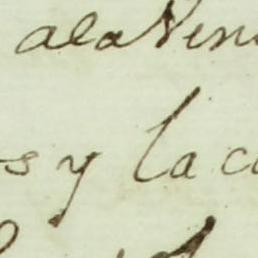 ala Ven
s y la ca